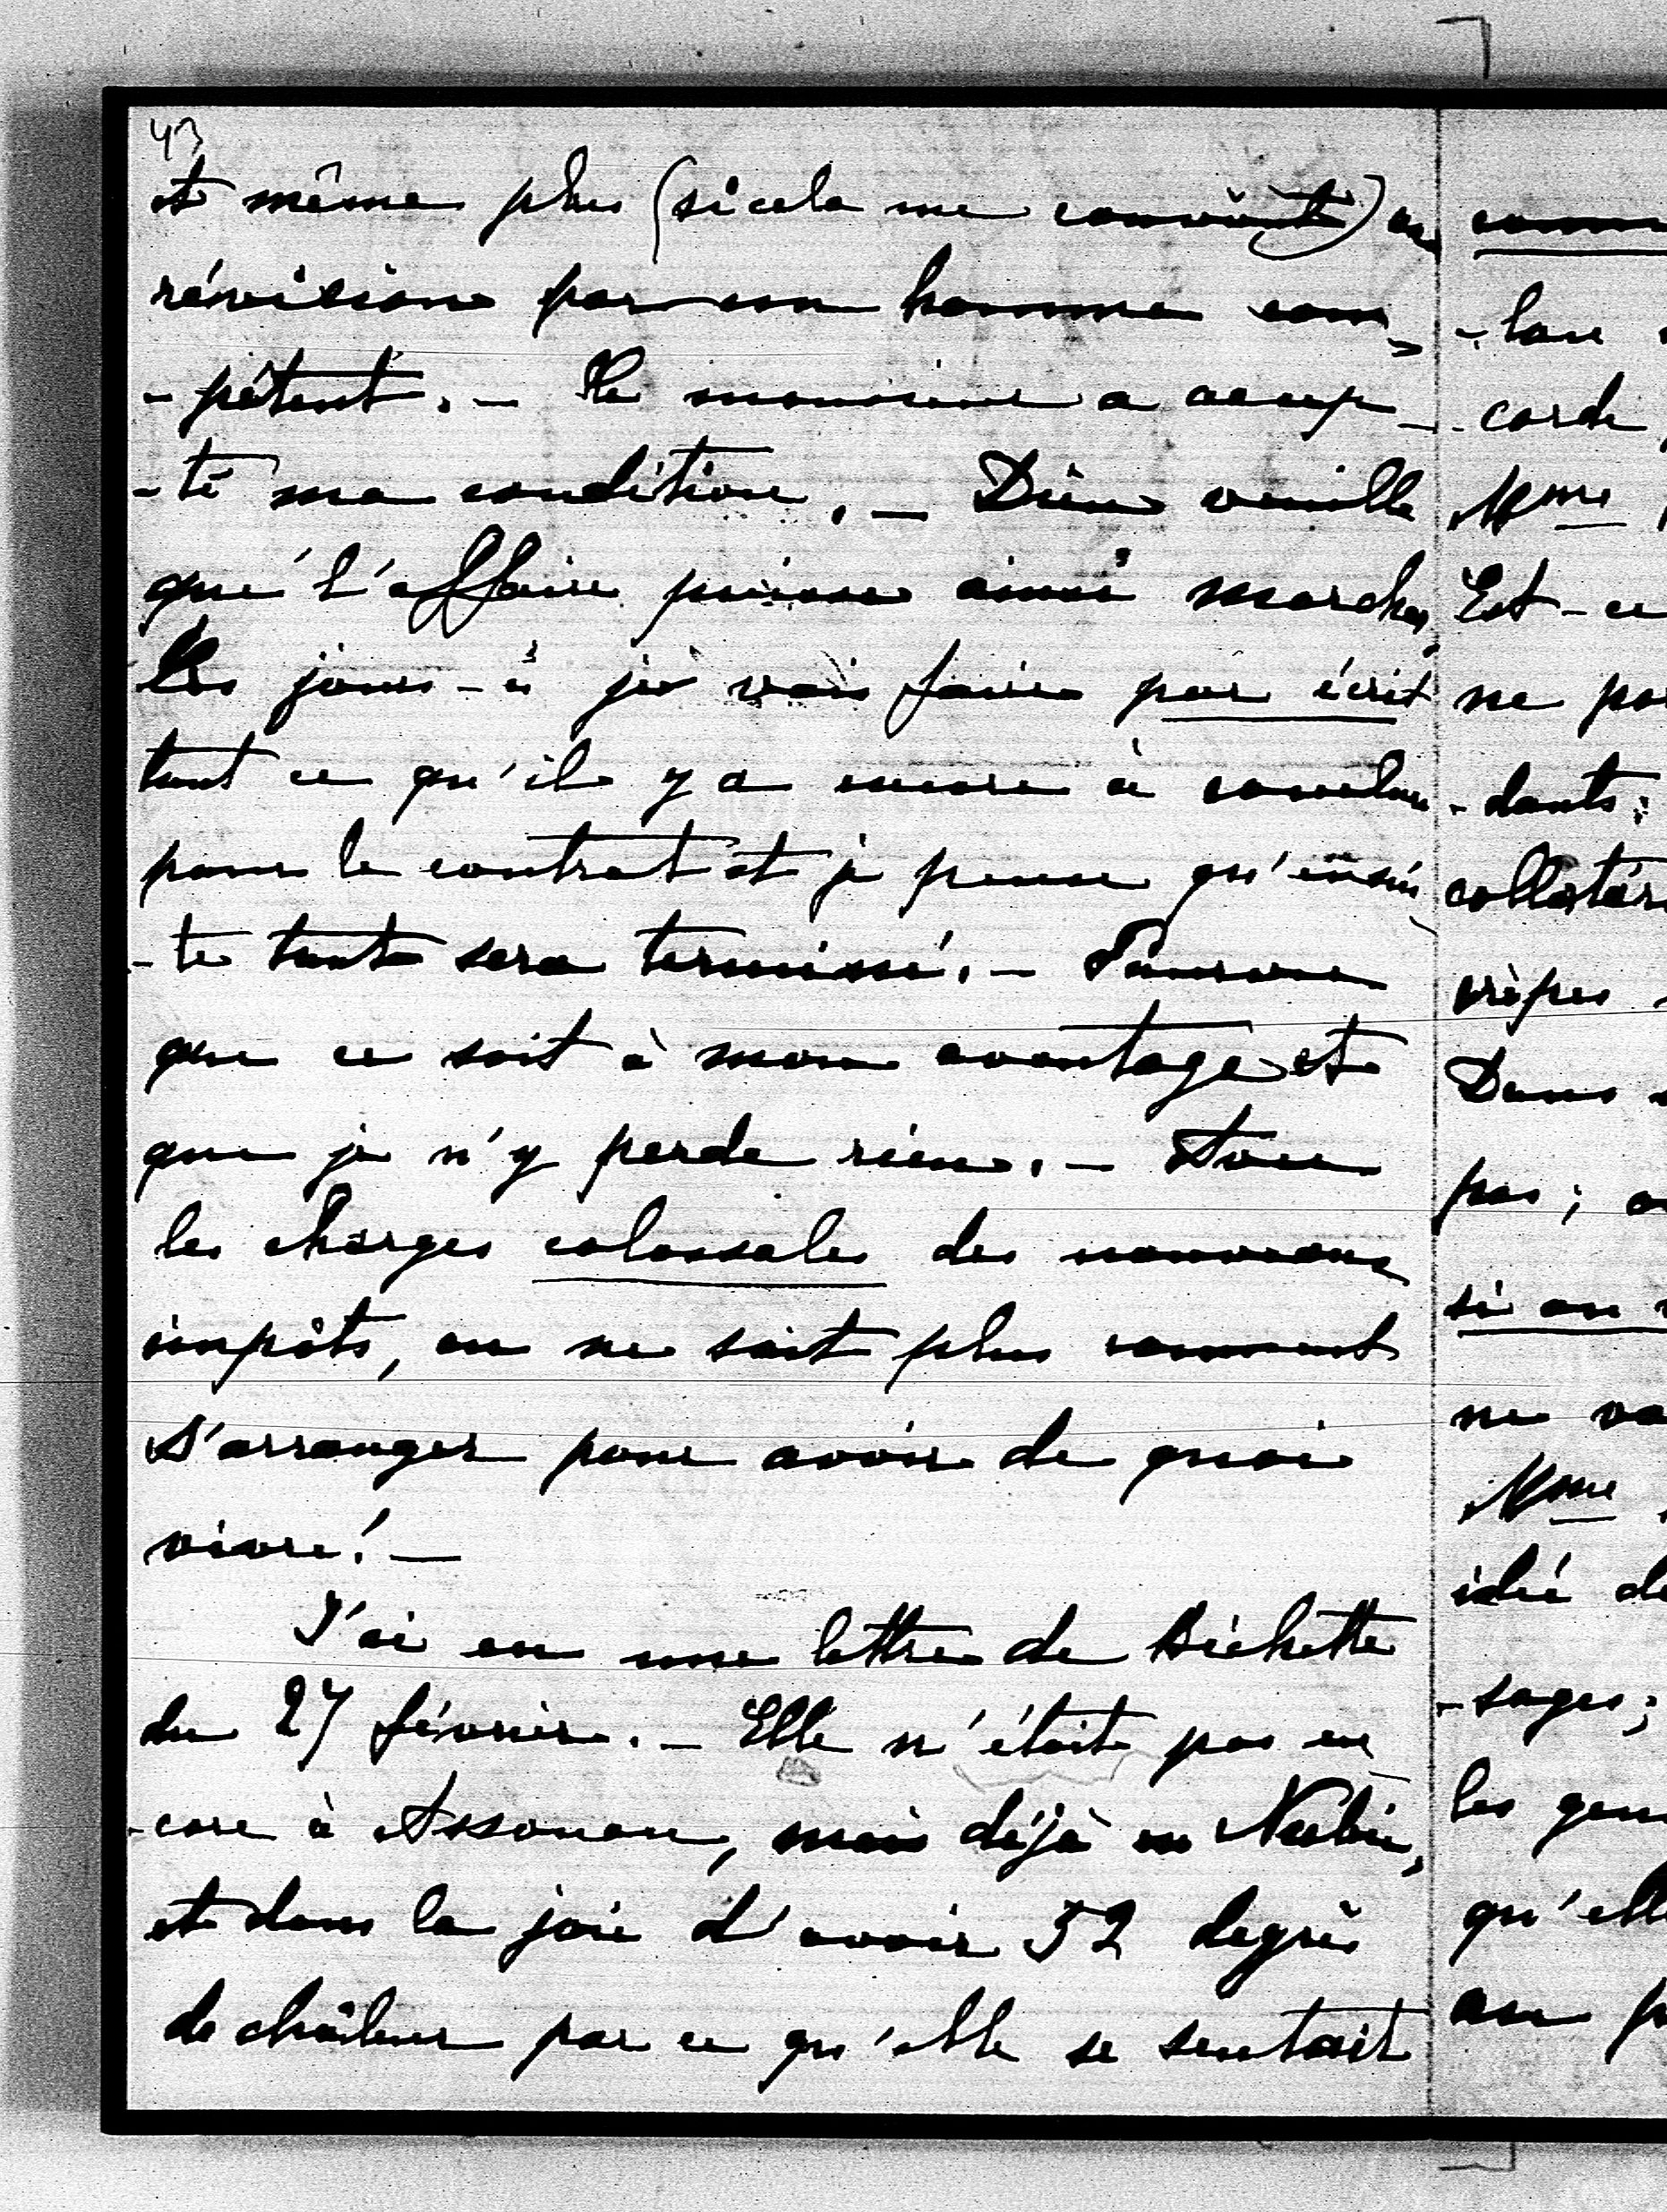 43
et même plus (si cela me convient) en
révision par un homme com-
-pétent. – Le monsieur a accep-
-té ma condition. – Dieu veuille
que l'affaire puisse ainsi marcher,
Ces jours-ci je vais faire par écrit
tout ce qu'il y a encore à conclure
pour le contrat et je pense qu'ensui-
-te tout sera terminé. – Pourvu
que ce soit à mon avantage et
que je n'y perde rien. – Avec
les charges colossales des nouveaux
impôts, on ne sait plus comment
s'arranger pour avoir de quoi
vivre! –
J'ai eu une lettre de Bichette
du 27 février. – Elle n'était pas en-
-core à Assouan, mais déjà en Nubie,
et dans la joie d'avoir 32 degrés
de chaleur par ce qu'elle se sentait
-corde
Mme
Est-ce
ne
-dants;
Dans
pas;
si on
ne
Mme
idée de
-sages;
les
qu'elle
au